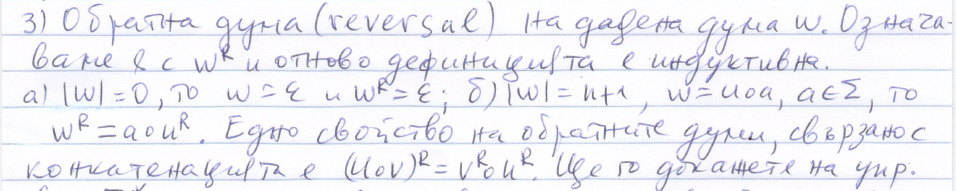 3) Обратна дума (reversal) на дадена дума w. Означа-
ваме я с w^R и отново дефиницията е индуктивна.
а) |w|=0, то w=ε и w^R=ε; б) |w|=n+1, w=u∘a, a∈Σ, то
w^R=a∘u^R. Едно свойство на обратните думи, свързано с
конкатенацията е (u∘v)^R=v^R∘u^R. Ще го докажете на упр.